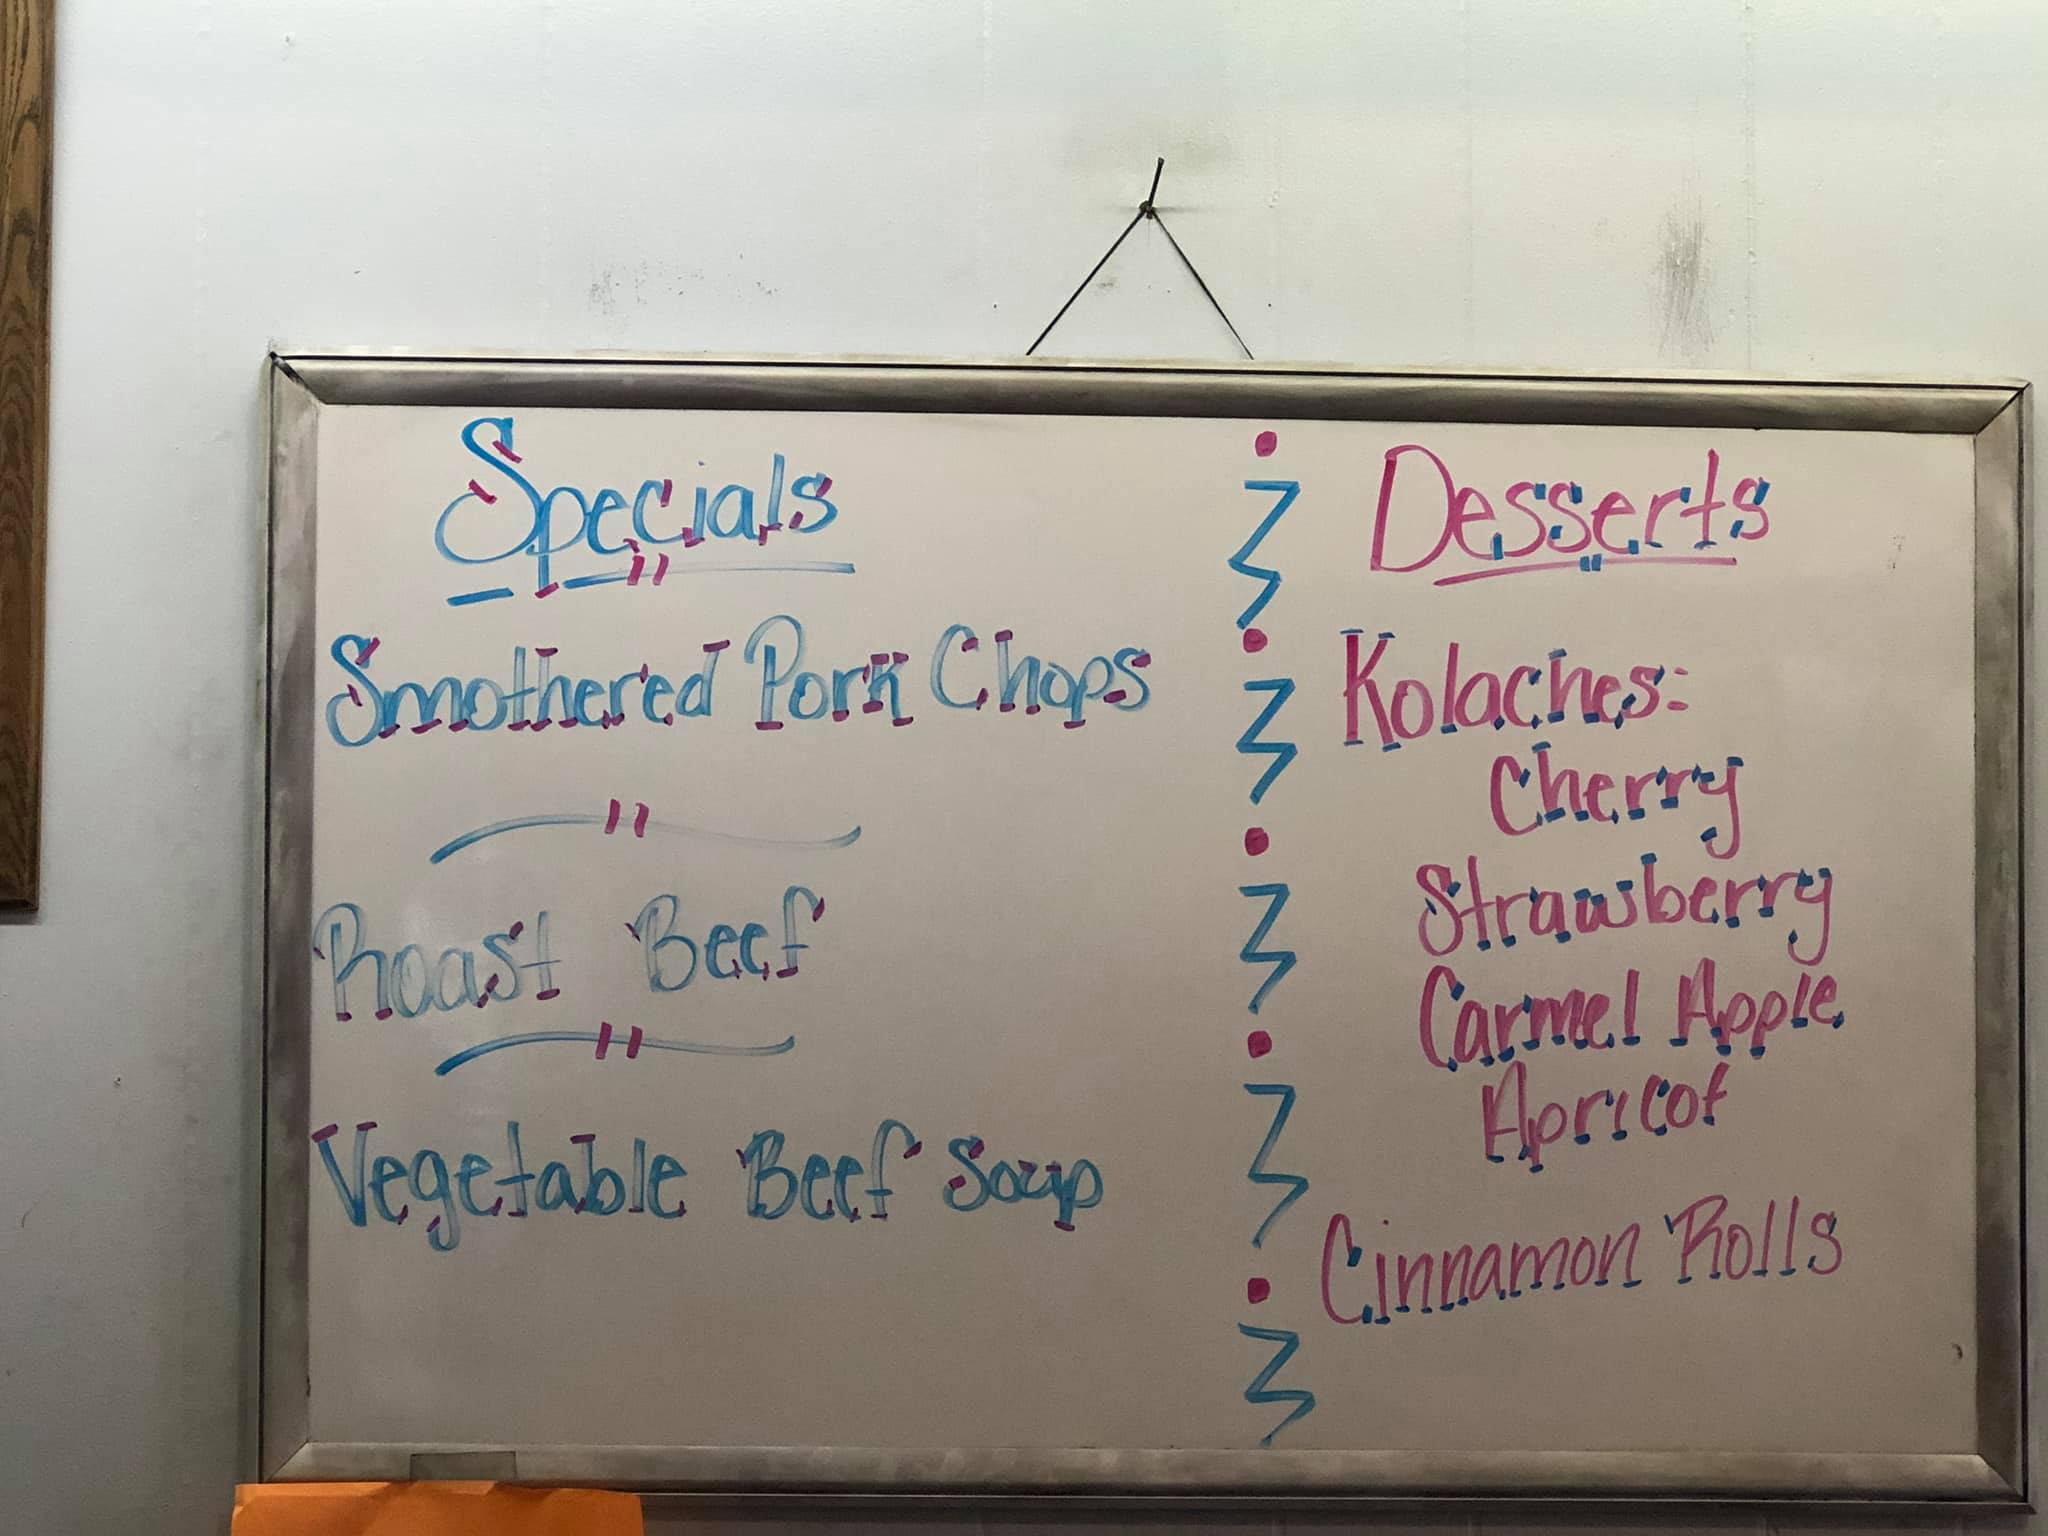 Specials
Smothered Pork Chops
Roast Beef
Vegetable Beef Soup
Desserts
Kolaches:
Cherry
Strawberry
Carmel Apple
Apricot
Cinnamon Rolls